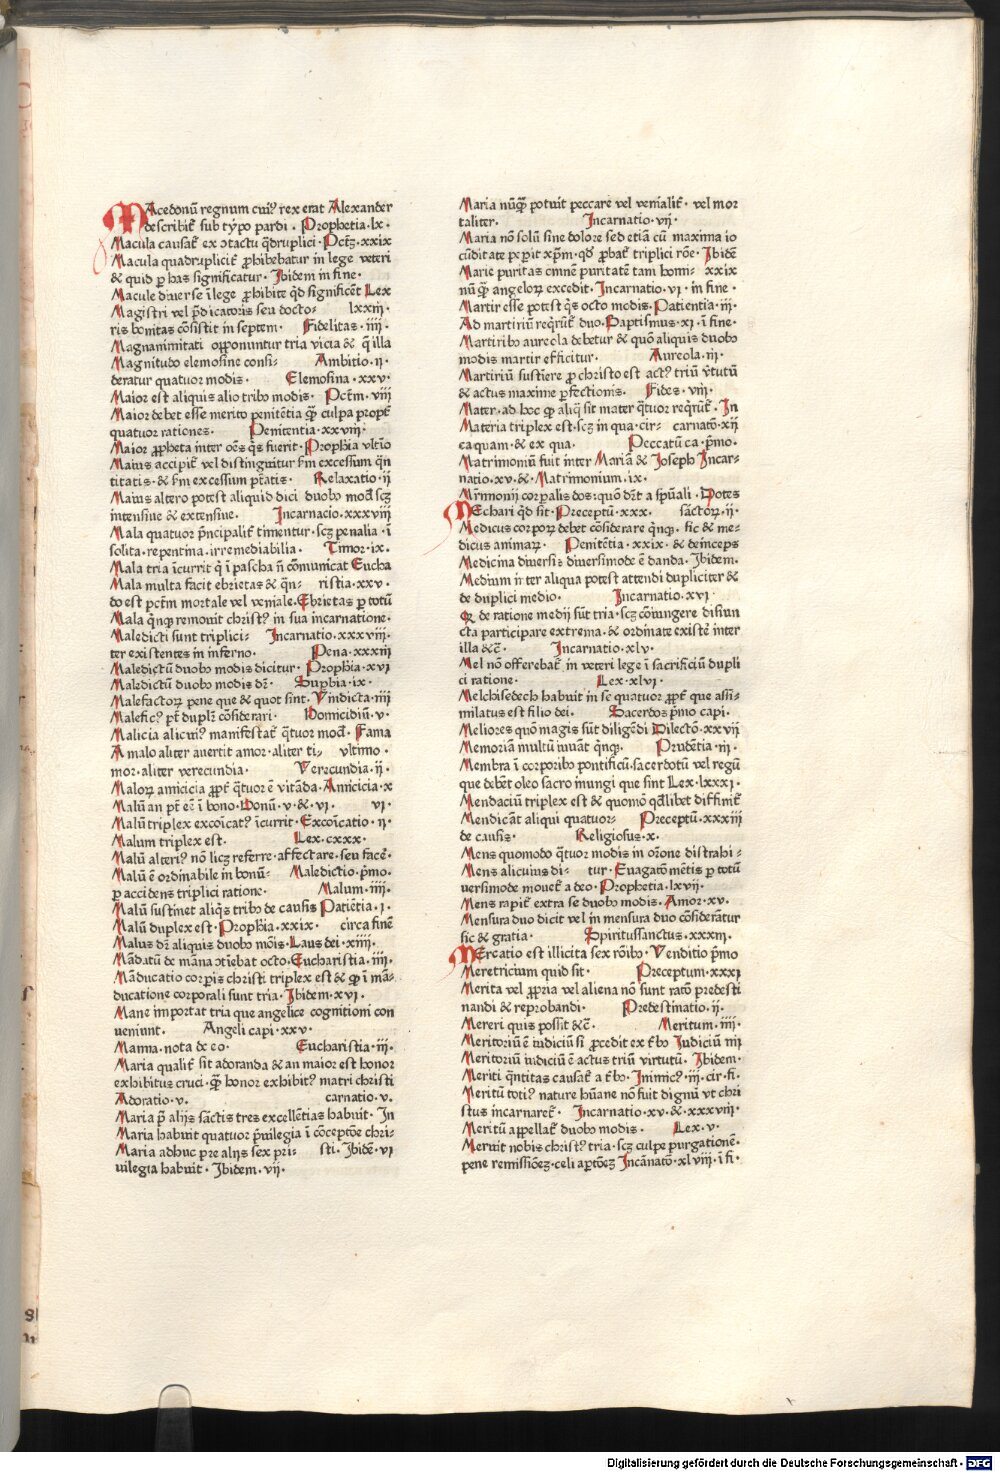 MAcedonū regnum cuiꝰ rex erat Alexander
describit᷑ sub typo pardi . Prophetia.lx.
Macula causat᷑ ex ɔtactu q̄druplici. Pctꝫ.xxix
Macula quadruplicit᷑ ꝓhibebatur in lege veteri
& quid p has significatur. Ibidem in fine.
Macule diuerse ī lege ꝓhibite qd significēt Lex
Magistri vel p̄dicatoris seu docto- lxxiii.
ris bonitas cōsistit in septem. Fidelitas.iiii.
Magnanimitati opponuntur tria vicia & q̄ illa
Magnitudo elemosine consi- Ambitio.ii.
deratur quatuor modis. Elemosina.xxv.
Maior est aliquis alio tribꝰ modis. Pctm̄.viii
Maior debet esse merito penitētia qꝫ culpa propt᷑
quatuor rationes. Penitentia.xxviii.
Maior ꝓpheta inter oēs q̄s fuerit. Prophīa vltīo
Maius accipit᷑ vel distinguitur ẜm excessum q̄n
titatis. & ẜm excessum p̄tatis. Relaxatio.ii
Maius altero potest aliquid dici duobꝰ mod̄ scꝫ
intensiue & extensiue. Incarnacio.xxxviii
Mala quatuor p̄ncipalit᷑ timentur. scꝫ penalia. ī
solita. repentina. irremediabilia. Timor.ix.
Mala tria īcurrit q̄ ī pascha nō cōmunicat Eucha
Mala multa facit ebrietas & q̄n- ristia.xxv.
do est pctm̄ mortale vel veniale. Ebrietas p totū
Mala q̄nqꝫ remouit christꝰ in sua incarnatione.
Maledicti sunt triplici- Incarnatio.xxxviii.
ter existentes in inferno. Pena.xxxiiii
Maledictū duobꝰ modis dicitur. Prophīa.xvi
Maledictū duobꝰ modis dr̄. Suphbia.ix.
Malefactoꝝ pene que & quot sint. Vindicta.iiii
Maleficꝰ pt̄ duplr̄ cōsiderari. Homicidiū.v.
Malicia alicuiꝰ manifestat᷑ q̄tuor mod̄. Fama
A malo aliter auertit amor. aliter ti- vltimo.
mor. aliter verecundia. Verecundia.ii.
Maloꝝ amicicia ꝓpt᷑ q̄tuor ē vitāda. Amicicia.x
Malū an pt̄ eē ī bono. Bonū.v.&.vi. vi.
Malū triplex excōicatꝰ īcurrit. Excōicatio.ii.
Malum triplex est. Lex.cxxx.
Malū alteriꝰ nō licꝫ referre. affectare. seu facē.
Malū ē ordinabile in bonū- Maledictio p̄mo.
p accidens triplici ratione. Malum.iiii.
Malū sustinet aliq̄s tribꝰ de causis Patiētia.i.
Malū duplex est. Prophīa.xxix. circa finē
Malus dr̄ aliquis duobꝰ mōis. Laus dei.xiiii.
Mādatū de māna ɔtiebat octo. Eucharistia.iii.
Māducatio corpris christi triplex est & qꝫ ī mā-
ducatione corporali sunt tria. Ibidem.xvi.
Mane importat tria que angelice cognitioni con
ueniunt. Angeli capi.xxv.
Manna. nota de eo. Eucharistia.iii.
Maria qualit᷑ sit adoranda & an maior est honor
exhibitus cruci. qꝫ honor exhibitꝰ matri christi
Adoratio.v. carnatio.v.
Maria p̄ alijs sāctis tres excellētias habuit. In
Maria habuit quatuor p̄uilegia ī cōceptōe chri-
Maria adhuc pre alijs sex pri- sti. Ibidē.vi
uilegia habuit. Ibidem.vii.
Maria nūqꝫ potuit peccare vel venialit᷑. vel mor
taliter. Incarnatio.vii.
Maria nō solū sine dolore sed etiā cū maxima io
cūditate pepit xp̄m. qd̄ ꝓbat᷑ triplici rōne. Ibidē
Marie puritas omnē puritatē tam homi- xxix
nū qꝫ angeloꝝ excedit. Incarnatio.vi.in fine.
Martir esse potest q̄s octo modis. Patientia.iii.
Ad martiriū req̄rit᷑ duo. Baptismus.xi.ī fine.
Martiribꝰ aureola debetur & quō aliquis duobꝰ
modis martir efficitur. Aureola.iii.
Martiriū sustiere ꝓ christo est actꝰ triū v̄tutū
& actus maxime pfectionis. Fides.viii.
Mater. ad hoc qꝫ aliq̄ sit mater q̄tuor req̄rūt᷑. In
Materia triplex est. scꝫ in qua. cir- carnatō.xii
ca quam. & ex qua. Peccatū ca. p̄mo.
Matrimoniū fuit inter Mariā & Joseph Incar-
natio.xv.&.Matrimonium.ix.
Mr̄imonij corpalis dos: quō dr̄t a spūali. Dotes
MEchari qd sit. Preceptū.xxx. sāctoꝝ.ii.
Medicus corpoꝝ debet cōsiderare q̄nqꝫ. sic & me-
dicus animaꝝ. Penitētia.xxix. & deinceps
Medicina diuersis diuersimode ē danda. Ibidem.
Medium inter aliqua potest attendi dupliciter &
de duplici medio. Incarnatio.xvi.
Qꝫ de ratione medij sūt tria. scꝫ cōiungere disiun
cta participare extrema. & ordinate existē inter
illa &c̄. Incarnatio.xlv.
Mel nō offerebat᷑ in veteri lege ī sacrificiū dupli
ci ratione. Lex.xlvi.
Melchisedech habuit in se quatuor ꝓpt᷑ que assi-
milatus est filio dei. Sacerdos p̄mo capi.
Meliores quō magis sūt diligēdi Dilectō.xxvii
Memoriā multū iuuāt q̄nqꝫ. Prudētia.iii.
Membra ī corporibꝰ pontificū. sacerdotū vel regū
que debēt oleo sacro inungi que sint Lex.lxxxi.
Mendaciū triplex est & quomō qd̄libet diffinit᷑
Mendicāt aliqui quatuor- Preceptū.xxxiii
de causis. Religiosus.x.
Mens quomodo q̄tuor modis in orōne distrahi-
Mens alicuius di- tur. Euagatō mētis p totū
uersimode mouet᷑ a deo. Prophetia.lxvii.
Mens rapit᷑ extra se duobꝰ modis. Amor.xv.
Mensura duo dicit vel in mensura duo cōsiderātur
sic & gratia. Spiritussanctus.xxxiii.
MErcatio est illicita sex rōibꝰ. Venditio p̄mo
Meretricium quid sit. Preceptum.xxxi
Merita vel ꝓpria vel aliena nō sunt ratō predesti
nandi & reprobandi. Predestinatio.ii.
Mereri quis possit &c̄. Meritum.iiii.
Meritoriū ē iudiciū si ꝓcedit ex tribꝰ Iudiciū iiii
Meritoriū iudiciū ē actus triū virtutū. Ibidem.
Meriti q̄ntitas causat᷑ a tribꝰ. Inimicꝰ.iii.cir.fi.
Meritū totiꝰ nature hūane nō fuit dignū vt chri
stus incarnaret᷑. Incarnatio.xv.&.xxxviii.
Meritū appellat᷑ duobꝰ modis. Lex.v.
Meruit nobis christꝰ tria. scꝫ culpe purgationē.
pene remissiōeꝫ. celi aptōeꝫ Incānatō.xlviii.ī fi.
Digitalisierung gefördert durch die Deutsche Forschungsgemeinschaft - DFG